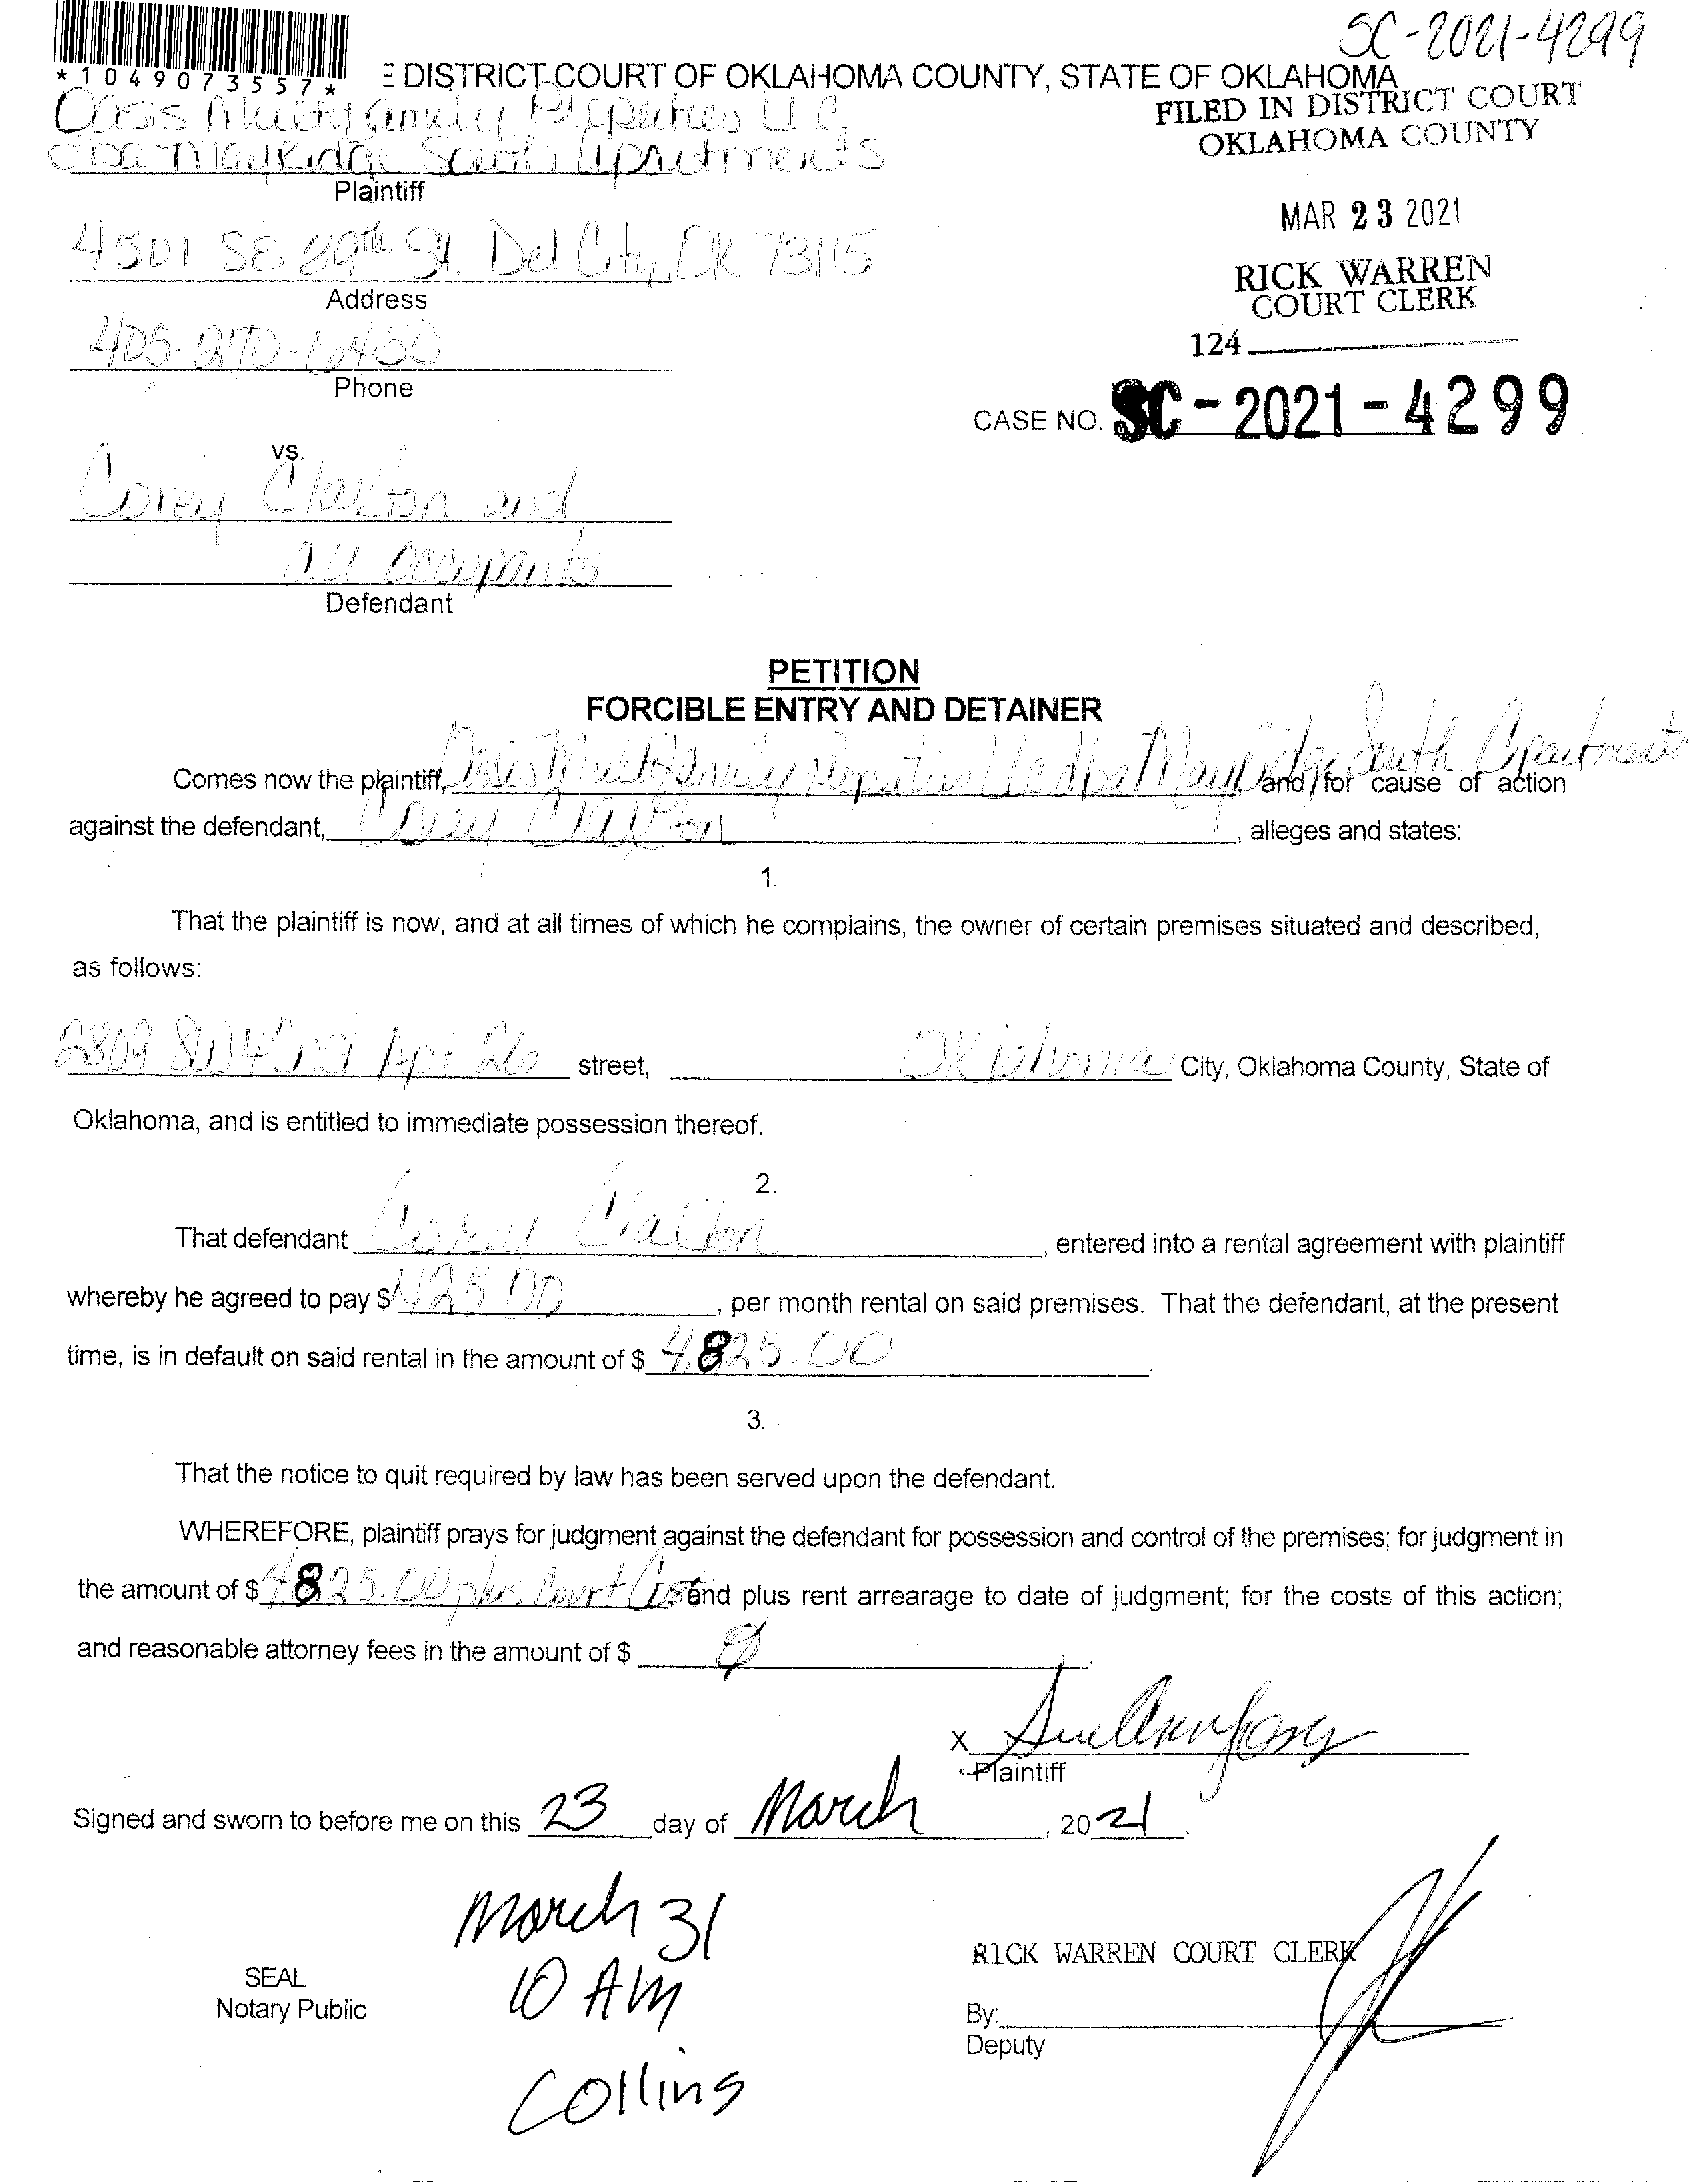 SC-2021-4299
*1049073557*
E DISTRICT COURT OF OKLAHOMA COUNTY, STATE OF OKLAHOMA
FILED IN DISTRICT COURT
OKLAHOMA COUNTY
Oasis Multifamily Properties LLC
dba MayRidge South Apartments
Plaintiff
MAR 23 2021
4501 SE 29th St. Del City, OK 73115
Address
RICK WARREN
COURT CLERK
405-
Phone
124
CASE NO. SC-2021-4299
vs.
Corey Clayton and
all occupants
Defendant
PETITION
FORCIBLE ENTRY AND DETAINER
Comes now the plaintiff, Oasis Multifamily Properties LLC dba MayRidge South Apartments and for cause of action
against the defendant, Corey Clayton, alleges and states:
1.
That the plaintiff is now, and at all times of which he complains, the owner of certain premises situated and described,
as follows:
2809 SW Apt 26 street, Oklahoma City, Oklahoma County, State of
Oklahoma, and is entitled to immediate possession thereof.
2.
That defendant Corey Clayton, entered into a rental agreement with plaintiff
whereby he agreed to pay $, per month rental on said premises. That the defendant, at the present
time, is in default on said rental in the amount of $ 4,825.00.
3.
That the notice to quit required by law has been served upon the defendant.
WHEREFORE, plaintiff prays for judgment against the defendant for possession and control of the premises; for judgment in
the amount of $ 4,825.00 plus Court Cost and plus rent arrearage to date of judgment; for the costs of this action;
and reasonable attorney fees in the amount of $
X
Plaintiff
Signed and sworn to before me on this 23 day of March, 2021.
March 31
10 AM
Collins
SEAL
Notary Public
RICK WARREN COURT CLERK
By:
Deputy